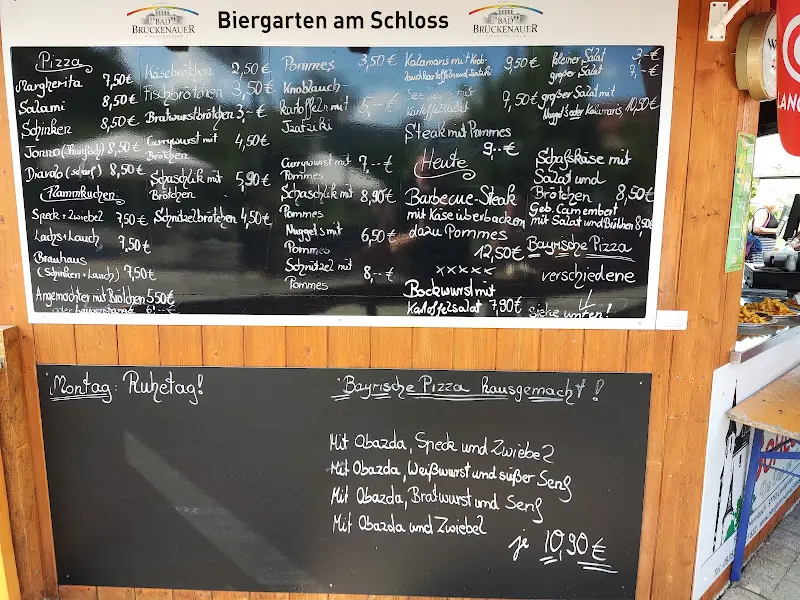 BAD
BRÜCKENAUER
Biergarten am Schloss
BAD
BRÜCKENAUER
Pizza
Margherita 7,50€
Salami 8,50€
Schinken 8,50€
Tonno (Thunfisch) 8,50€
Diavolo (scharf) 8,50€
Flammkuchen:
Speck + Zwiebel 7,50€
Lachs + Lauch 7,50€
Brauhaus
(Schinken + Lauch) 7,50€
Angemachter mit Brötchen 5,50€
oder Laugenstange 6,--€
Käsebrötchen 2,50€
Fischbrötchen 3,50€
Bratwurstbrötchen 3,-€
Currywurst mit 4,50€
Brötchen
Schaschlik mit 5,90€
Brötchen
Schnitzelbrötchen 4,50€
Pommes 3,50€
Knoblauch
Kartoffeln mit 5,--€
Tzatziki
Currywurst mit 7,--€
Pommes
Schaschlik mit 8,90€
Pommes
Nuggets mit 6,50€
Pommes
Schnitzel mit 8,--€
Pommes
Kalamaris mit Knob-
lauchkartoffeln und Tzatziki 9,50€
Kartoffelsalat 9,50€
Steak mit Pommes
9,--€
Heute
Barbecue-Steak
mit Käse überbacken
dazu Pommes
12,50€
xxxxx
Bockwurst mit
Kartoffelsalat 7,90€
kleiner Salat 3,-€
großer Salat 7,-€
großer Salat mit
Nuggets oder Kalamaris 10,50€
Schafskäse mit
Salat und
Brötchen 8,50€
Geb. Camembert
mit Salat und Brötchen 8,50€
Bayrische Pizza!
verschiedene
siehe unten!
Montag: Ruhetag!
Bayrische Pizza hausgemacht!
Mit Obazda, Speck und Zwiebel
Mit Obazda, Weißwurst und süßer Senf
Mit Obazda, Bratwurst und Senf
Mit Obazda und Zwiebel
je 10,90€